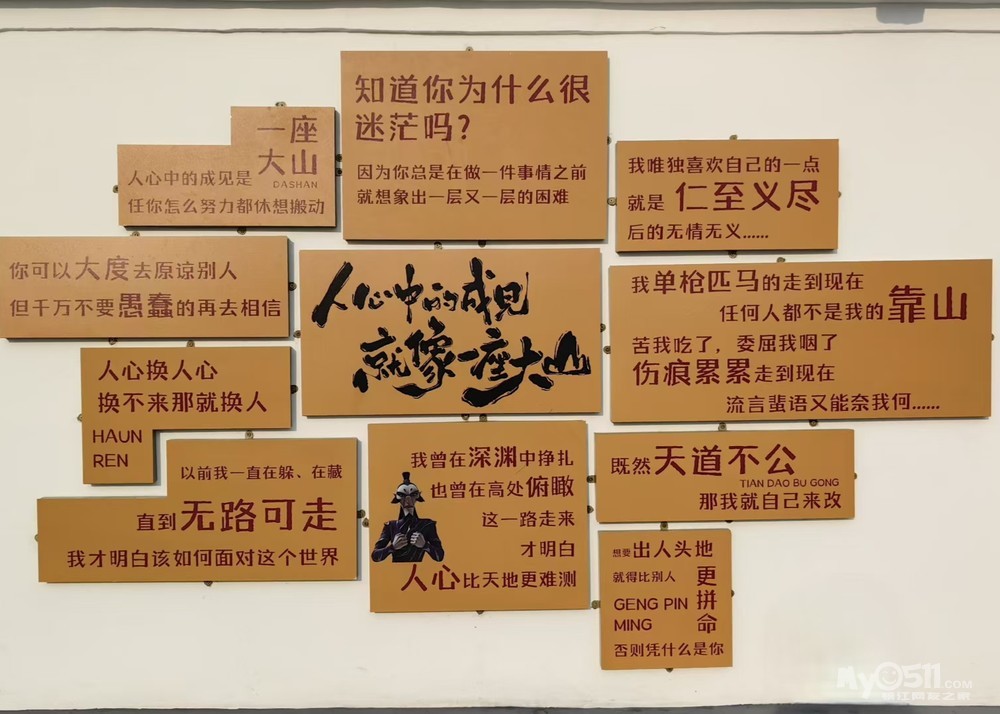 知道你为什么很
迷茫吗？
因为你总是在做一件事情之前
就想象出一层又一层的困难
一座
大山
人心中的成见是
DASHAN
任你怎么努力都休想搬动
我唯独喜欢自己的一点
就是 仁至义尽
后的无情无义......
你可以大度去原谅别人
但千万不要愚蠢的再去相信
人心中的成见
就像一座大山
我单枪匹马的走到现在
任何人都不是我的靠山
苦我吃了，委屈我咽了
伤痕累累走到现在
流言蜚语又能奈我何......
人心换人心
换不来那就换人
HAUN
REN
以前我一直在躲、在藏
直到无路可走
我才明白该如何面对这个世界
我曾在深渊中挣扎
也曾在高处俯瞰
这一路走来
才明白
人心比天地更难测
既然天道不公
TIAN DAO BU GONG
那我就自己来改
想要出人头地
就得比别人 更
GENG PIN 拼
MING 命
否则凭什么是你
My0511.COM